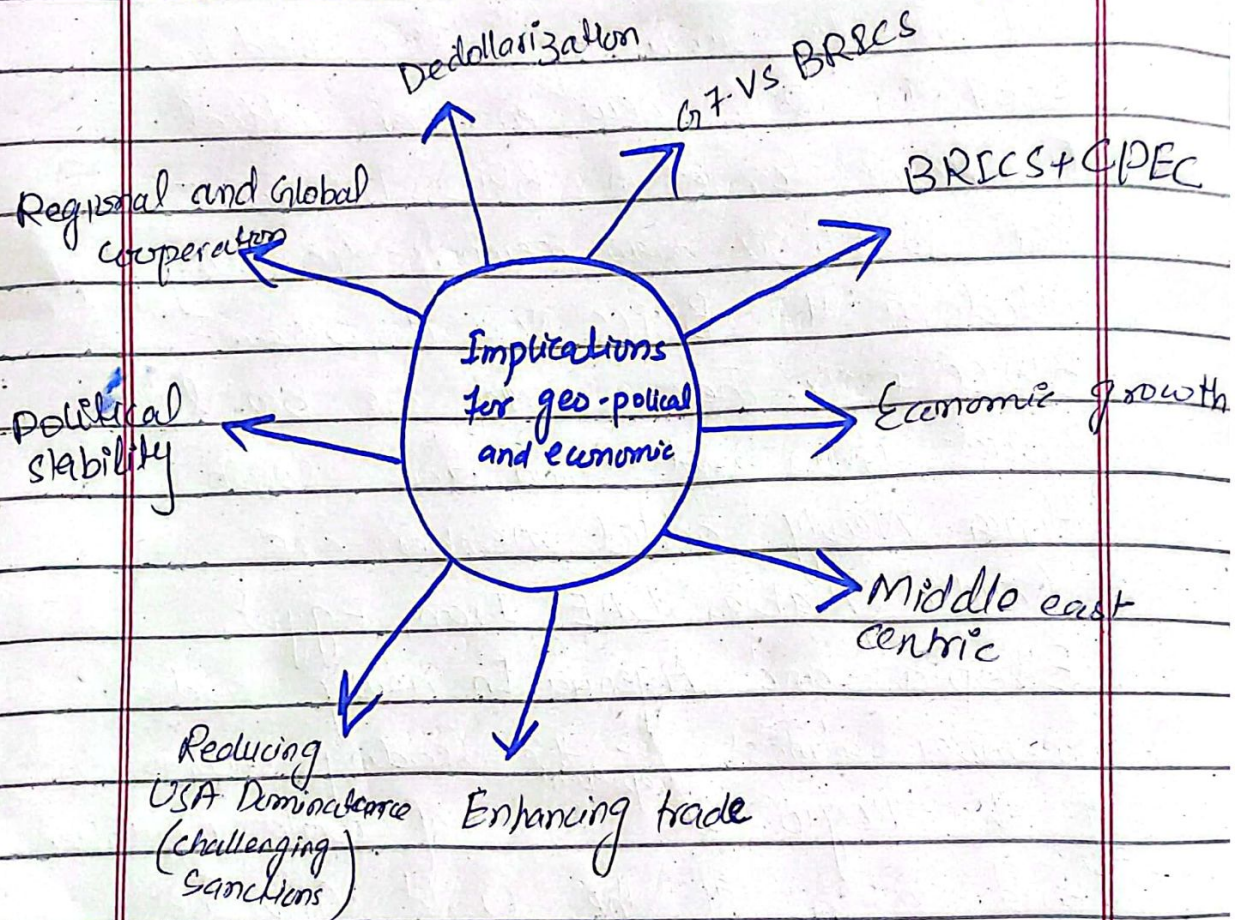 Dedollarization
G7-VS BRICS
BRICS+CPEC
Regional and Global
cooperation
Implications
for geo-polical
and economic
Economic growth
Political
stability
Middle east
centric
Reducing
USA Dominatance
(challenging
Sanctions)
Enhancing trade